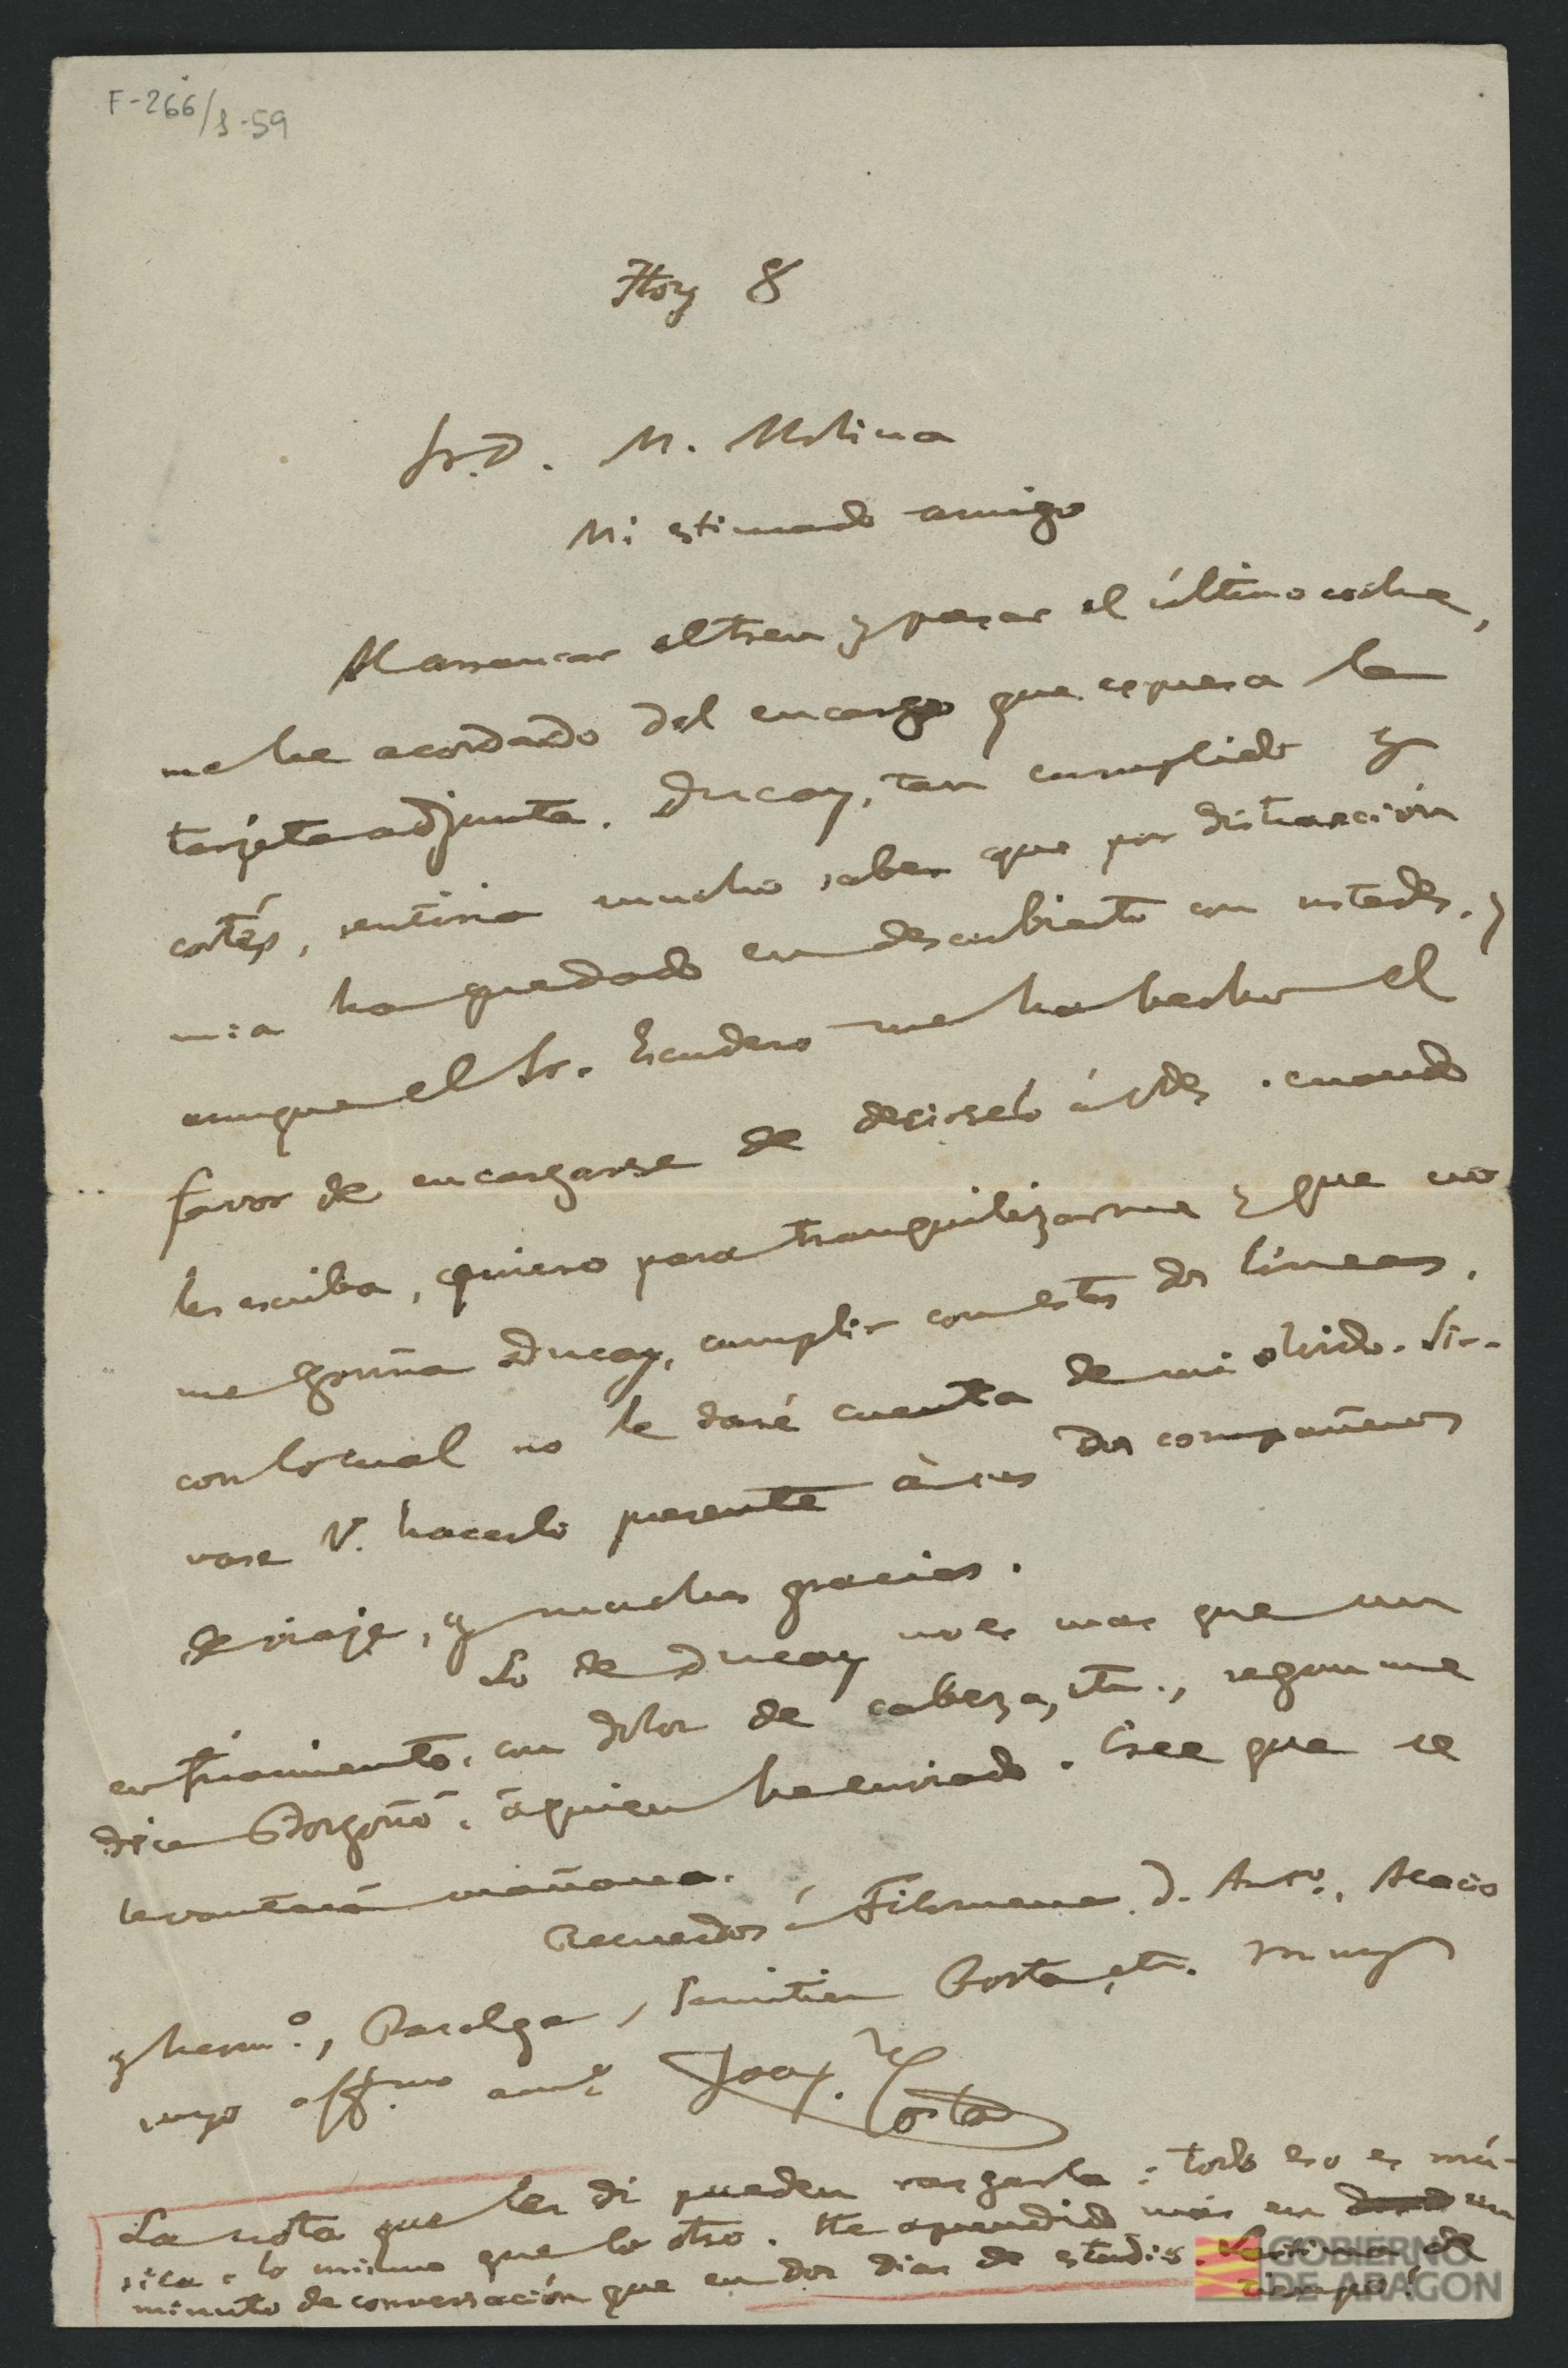 F-266/1-59
Hoy 8
Sr. D. M. Molina
Mi estimado amigo
Al arrancar el tren y pasar el último coche,
me he acordado del encargo que expresa la
tarjeta adjunta. Ducay, tan cumplido y
cortés, sentiria mucho saber que por distracción
mia ha quedado en descubierto con ustedes, y
aunque el Sr. Escudero me ha hecho el
favor de encargarse de decirselo á Vdes. cuando
les escriba, quiero para tranquilizarme y que no
me gruña Ducay, cumplir con estas dos líneas,
con lo cual no le daré cuenta de mi olvido. Sir-
vase V. hacerlo presente á sus dos compañeros
de viaje, y muchas gracias.
Lo de Ducay no es mas que un
enfriamiento, con dolor de cabeza, etc., segun me
dice Borgoñó, á quien he enviado. Cree que se
levantará mañana.
Recuerdos á Filomena, D. Anto., Acacio
y hermo., , Sentitien Costa, etc. Muy
suyo affmo. amo. Joaq. Costa
La nota que les di pueden rasgarla: todo eso es mú-
sica, lo mismo que lo otro. He aprendido más en un
minuto de conversación que en dos dias de estudio. Lastima de
tiempo!
GOBIERNO
DE ARAGON